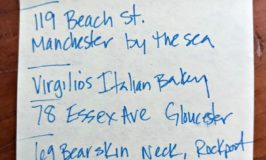 119 Beach St.
Manchester by the sea
Virgilios Italian Bakery
78 Essex Ave Gloucester
Bearskin Neck, Rockport